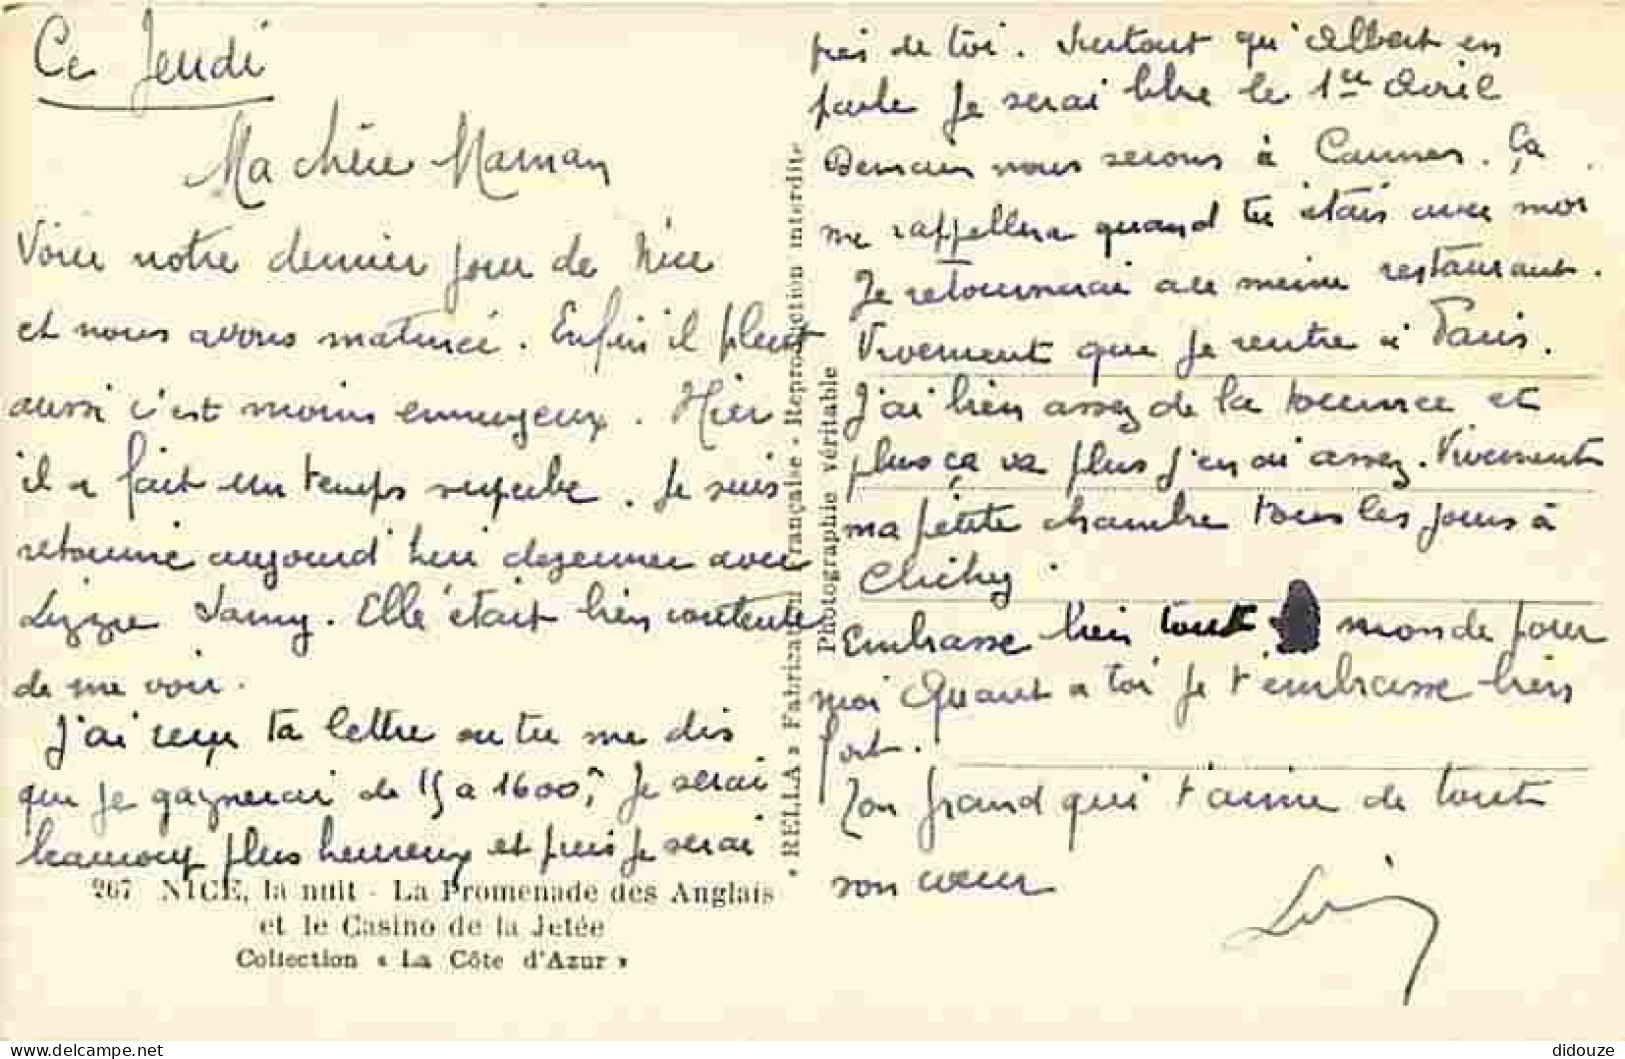 Ce Jeudi
Ma chère Maman
Voici notre dernier jour de Nice
et nous avons matinée. Enfin il pleut
aussi c'est moins ennuyeux. Hier
il a fait un temps superbe. Je suis
retourné aujourd'hui dejeuner avec
Lizzie Samy. Elle était bien contente
de me voir.
J'ai reçu ta lettre ou tu me dis
que je gagnerai de 15 a 1600, Je serai
beaucoup plus heureux et puis je serai
267 NICE, la nuit - La Promenade des Anglais
et le Casino de la Jetée
Collection « La Côte d'Azur »
« RELLA » Fabrication Française - Reproduction interdite
Photographie véritable
près de toi. Surtout qu'Albert en
parle Je serai libre le 1er Avril
Demain nous serons à Cannes. Ça
me rappellera quand tu étais avec moi
Je retournerai au meme restaurant.
Vivement que je rentre à Paris.
J'ai bien assez de la tournée et
plus ça va plus j'en ai assez. Vivement
ma petite chambre tous les jours à
Clichy.
Embrasse bien tout monde pour
moi Quant a toi je t'embrasse bien
fort.
Ton grand qui t'aime de tout
son coeur
didouze